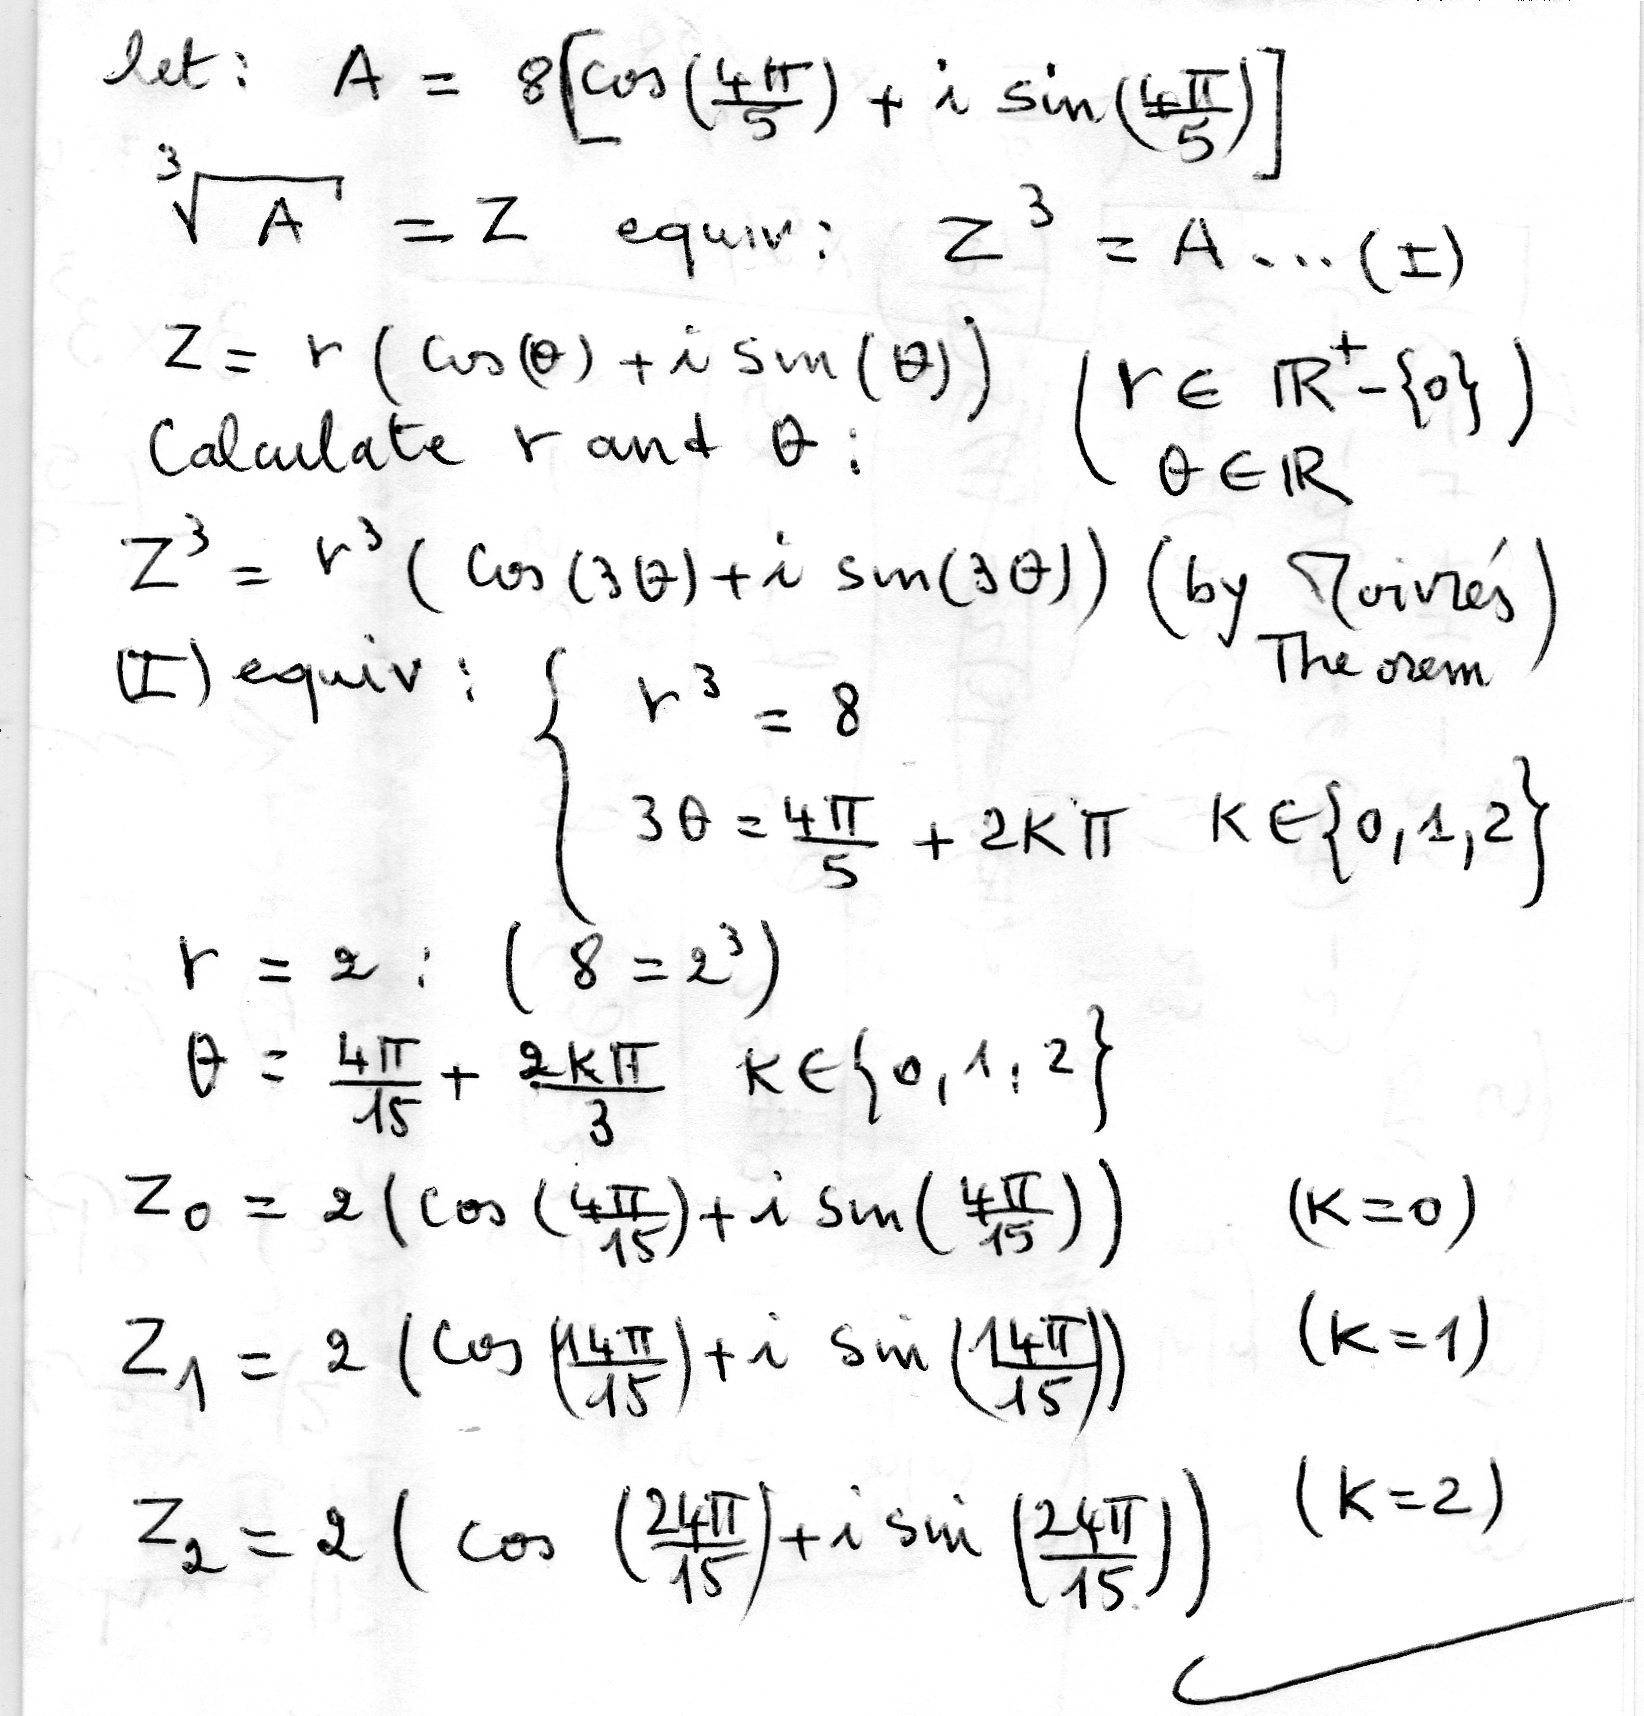 let: A = 8[cos(4π/5) + i sin(4π/5)]
³√A = Z equiv: Z³ = A ... (I)
Z = r(cos(θ) + i sin(θ)) (r ∈ ℝ⁺-{0}
Calculate r and θ: θ ∈ ℝ)
Z³ = r³(cos(3θ) + i sin(3θ)) (by Moivre's
Theorem)
(I) equiv: { r³ = 8
3θ = 4π/5 + 2Kπ K ∈ {0,1,2}
r = 2 : (8 = 2³)
θ = 4π/15 + 2Kπ/3 K ∈ {0,1,2}
Z₀ = 2(cos(4π/15) + i sin(4π/15)) (K=0)
Z₁ = 2(cos(14π/15) + i sin(14π/15)) (K=1)
Z₂ = 2(cos(24π/15) + i sin(24π/15)) (K=2)